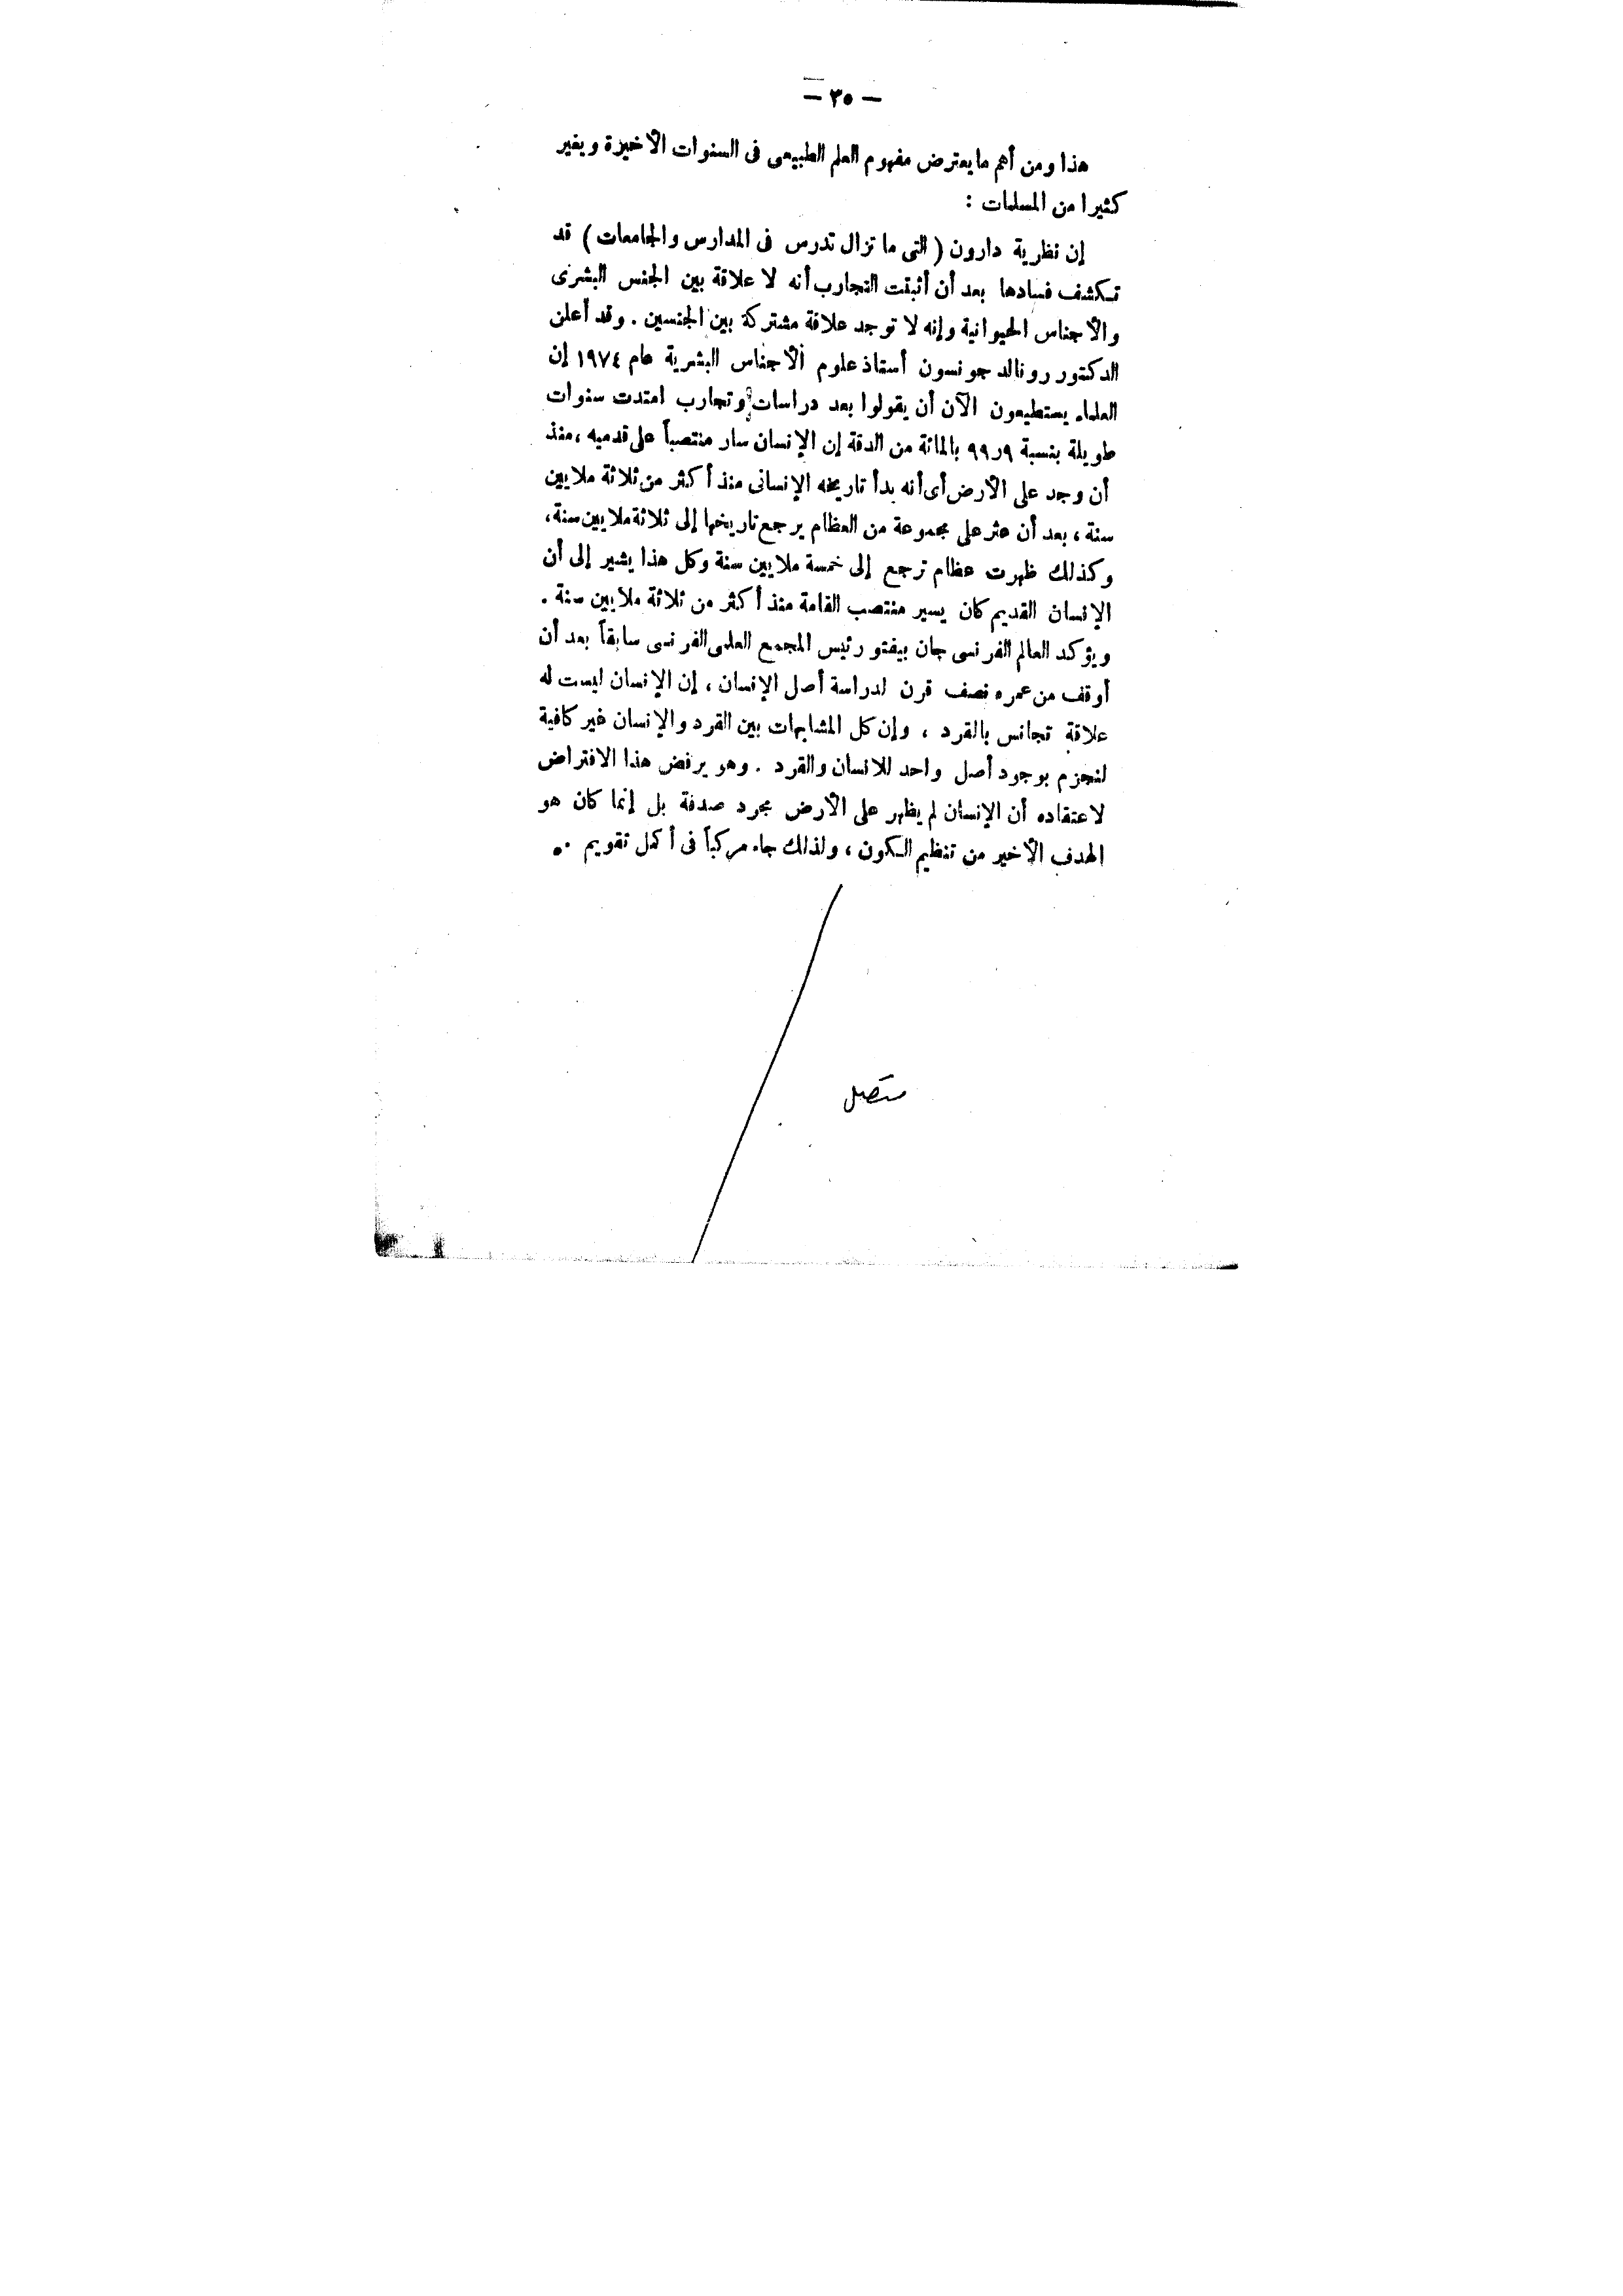 — ٣٥ —
هذا ومن أهم ما يعترض مفهوم العلم الطبيعى فى السنوات الأخيرة ويغير
كثيرا من المسلمات :
إن نظرية دارون ( التى ما تزال تدرس فى المدارس والجامعات ) قد
تكشف فسادها بعد أن أثبتت التجارب أنه لا علاقة بين الجنس البشرى
والأجناس الحيوانية وإنه لا توجد علاقة مشتركة بين الجنسين . وقد أعلن
الدكتور رونالد جونسون أستاذ علوم الأجناس البشرية عام ١٩٧٤ إن
العلماء يستطيعون الآن أن يقولوا بعد دراسات وتجارب امتدت سنوات
طويلة بنسبة ٩ر٩٩ بالمائة من الدقة إن الإنسان سار منتصباً على قدميه ، منذ
أن وجد على الأرض أى أنه بدأ تاريخه الإنسانى منذ أكثر من ثلاثة ملايين
سنة ، بعد أن عثر على مجموعة من العظام يرجع تاريخها إلى ثلاثة ملايين سنة ،
وكذلك ظهرت عظام ترجع إلى خمسة ملايين سنة وكل هذا يشير إلى أن
الإنسان القديم كان يسير منتصب القامة منذ أكثر من ثلاثة ملايين سنة .
ويؤكد العالم الفرنسى جان بيفتو رئيس المجمع العلمى الفرنسى سابقاً بعد أن
أوقف من عمره نصف قرن لدراسة أصل الإنسان ، إن الإنسان ليست له
علاقة تجانس بالقرد ، وإن كل المشابهات بين القرد والإنسان غير كافية
لنجزم بوجود أصل واحد للانسان والقرد . وهو يرفض هذا الافتراض
لاعتقاده أن الإنسان لم يظهر على الأرض مجرد صدفة بل إنما كان هو
الهدف الأخير من تنظيم الكون ، ولذلك جاء مركباً فى أكمل تقويم ..
متصل